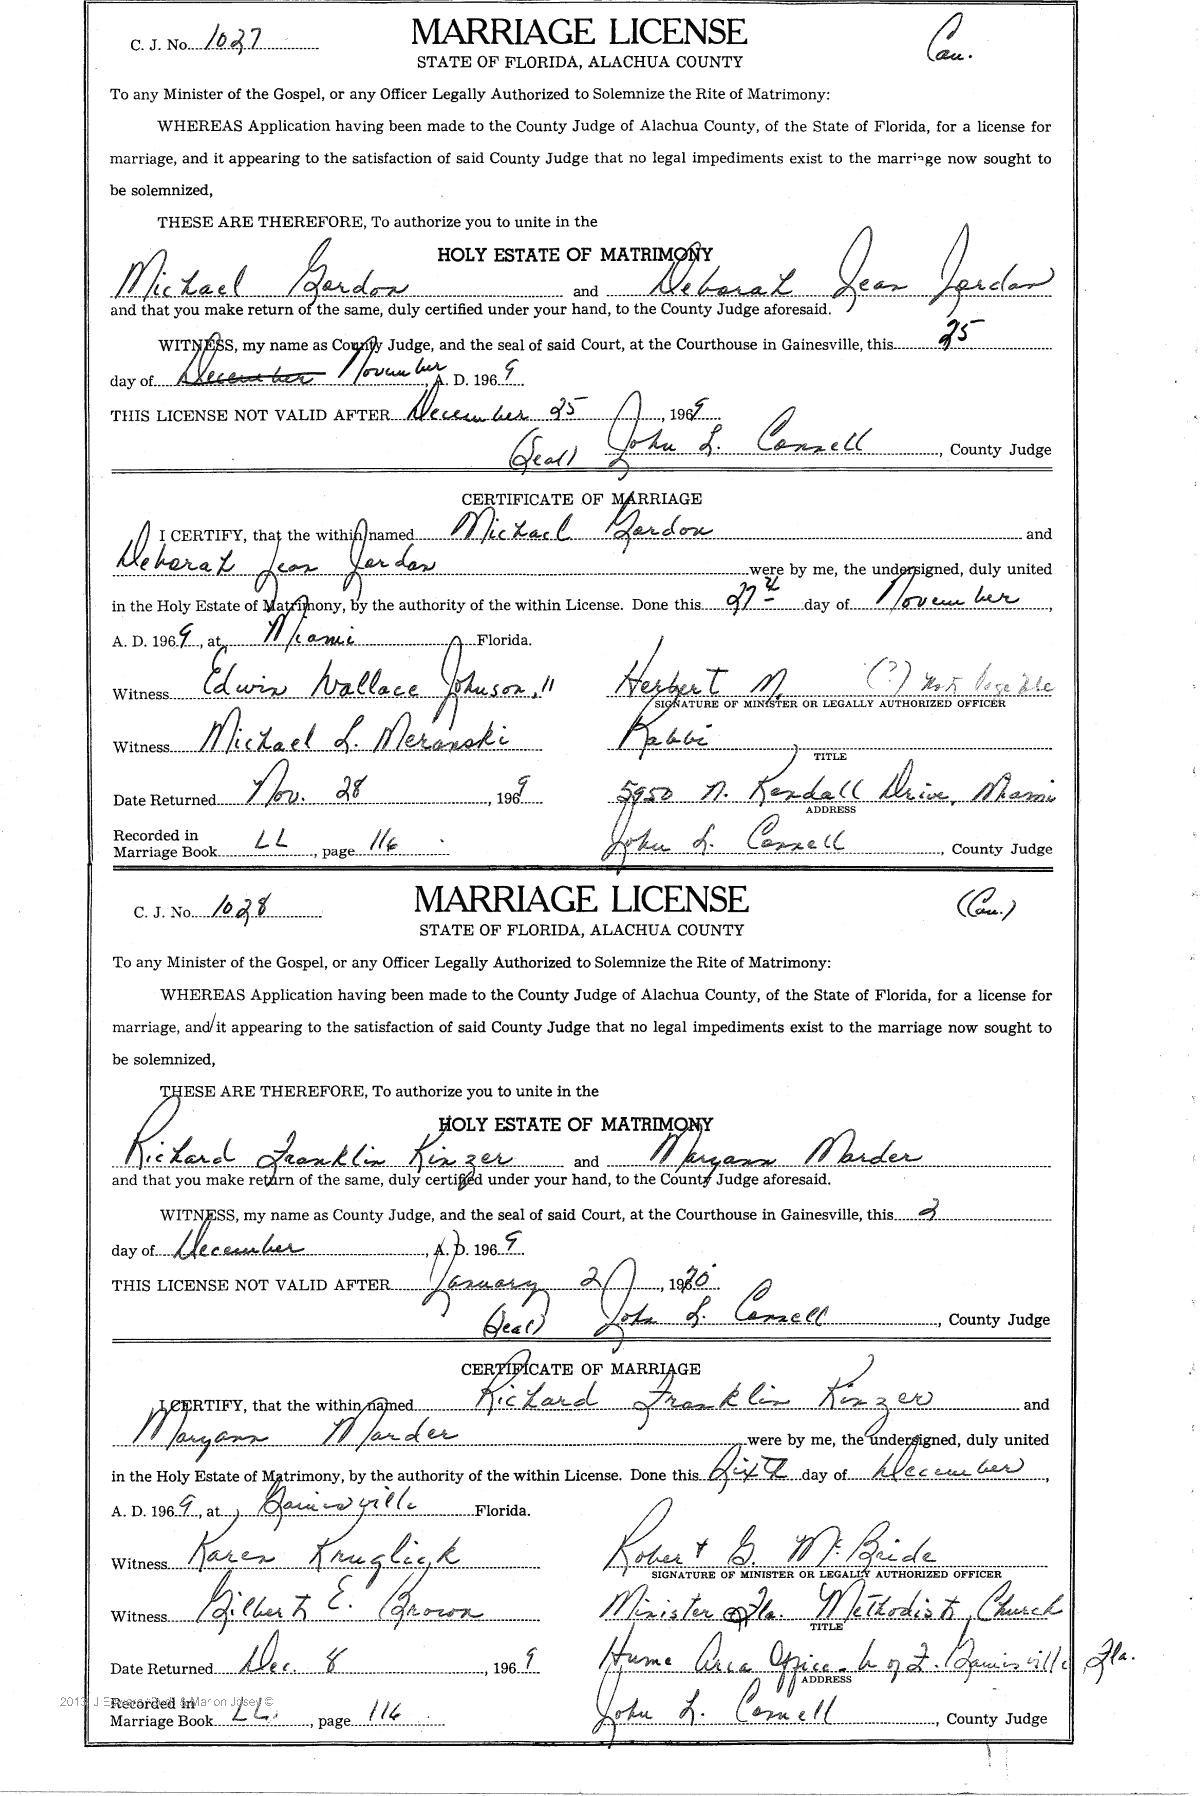 C. J. No. 1027
MARRIAGE LICENSE
Cau.
STATE OF FLORIDA, ALACHUA COUNTY
To any Minister of the Gospel, or any Officer Legally Authorized to Solemnize the Rite of Matrimony:
WHEREAS Application having been made to the County Judge of Alachua County, of the State of Florida, for a license for
marriage, and it appearing to the satisfaction of said County Judge that no legal impediments exist to the marriage now sought to
be solemnized,
THESE ARE THEREFORE, To authorize you to unite in the
HOLY ESTATE OF MATRIMONY
Michael Gordon and Deborah Jean Jordan
and that you make return of the same, duly certified under your hand, to the County Judge aforesaid.
WITNESS, my name as County Judge, and the seal of said Court, at the Courthouse in Gainesville, this 25
day of December November, A. D. 1969
THIS LICENSE NOT VALID AFTER December 25, 1969
(Seal) John L. Connell, County Judge
CERTIFICATE OF MARRIAGE
I CERTIFY, that the within named Michael Gordon and
Deborah Jean Jordan were by me, the undersigned, duly united
in the Holy Estate of Matrimony, by the authority of the within License. Done this 27th day of November,
A. D. 1969, at Miami Florida.
Witness Edwin Wallace Johnson, II Herbert M. (?) not legible
SIGNATURE OF MINISTER OR LEGALLY AUTHORIZED OFFICER
Witness Michael L. Meranski Rabbi
TITLE
Date Returned Nov. 28, 1969 5950 N. Kendall Drive, Miami
ADDRESS
Recorded in
Marriage Book LL, page 116 John L. Connell, County Judge
C. J. No. 1028
MARRIAGE LICENSE
(Cau.)
STATE OF FLORIDA, ALACHUA COUNTY
To any Minister of the Gospel, or any Officer Legally Authorized to Solemnize the Rite of Matrimony:
WHEREAS Application having been made to the County Judge of Alachua County, of the State of Florida, for a license for
marriage, and it appearing to the satisfaction of said County Judge that no legal impediments exist to the marriage now sought to
be solemnized,
THESE ARE THEREFORE, To authorize you to unite in the
HOLY ESTATE OF MATRIMONY
Richard Franklin Kinzer and Maryann Marder
and that you make return of the same, duly certified under your hand, to the County Judge aforesaid.
WITNESS, my name as County Judge, and the seal of said Court, at the Courthouse in Gainesville, this 2
day of December, A. D. 1969
THIS LICENSE NOT VALID AFTER January 2, 1970
(Seal) John L. Connell, County Judge
CERTIFICATE OF MARRIAGE
I CERTIFY, that the within named Richard Franklin Kinzer and
Maryann Marder were by me, the undersigned, duly united
in the Holy Estate of Matrimony, by the authority of the within License. Done this Sixth day of December,
A. D. 1969, at Gainesville Florida.
Witness Karen Kruglick Robert G. McBride
SIGNATURE OF MINISTER OR LEGALLY AUTHORIZED OFFICER
Witness Gilbert E. Brown Minister Fla. Methodist Church
TITLE
Date Returned Dec. 8, 1969 Hume Area Office - U of F. Gainesville, Fla.
ADDRESS
Recorded in
Marriage Book LL, page 116 John L. Connell, County Judge